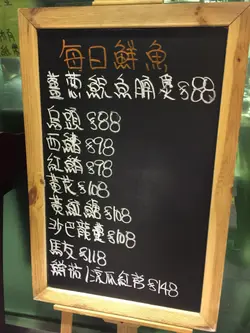 每日鮮魚
薑蔥魚腩煲 $88
烏頭 $88
西鱠 $98
紅鮋 $98
黃花 $108
黃立鱠 $108
沙巴龍躉 $108
馬友 $118
/涼瓜紅 $148